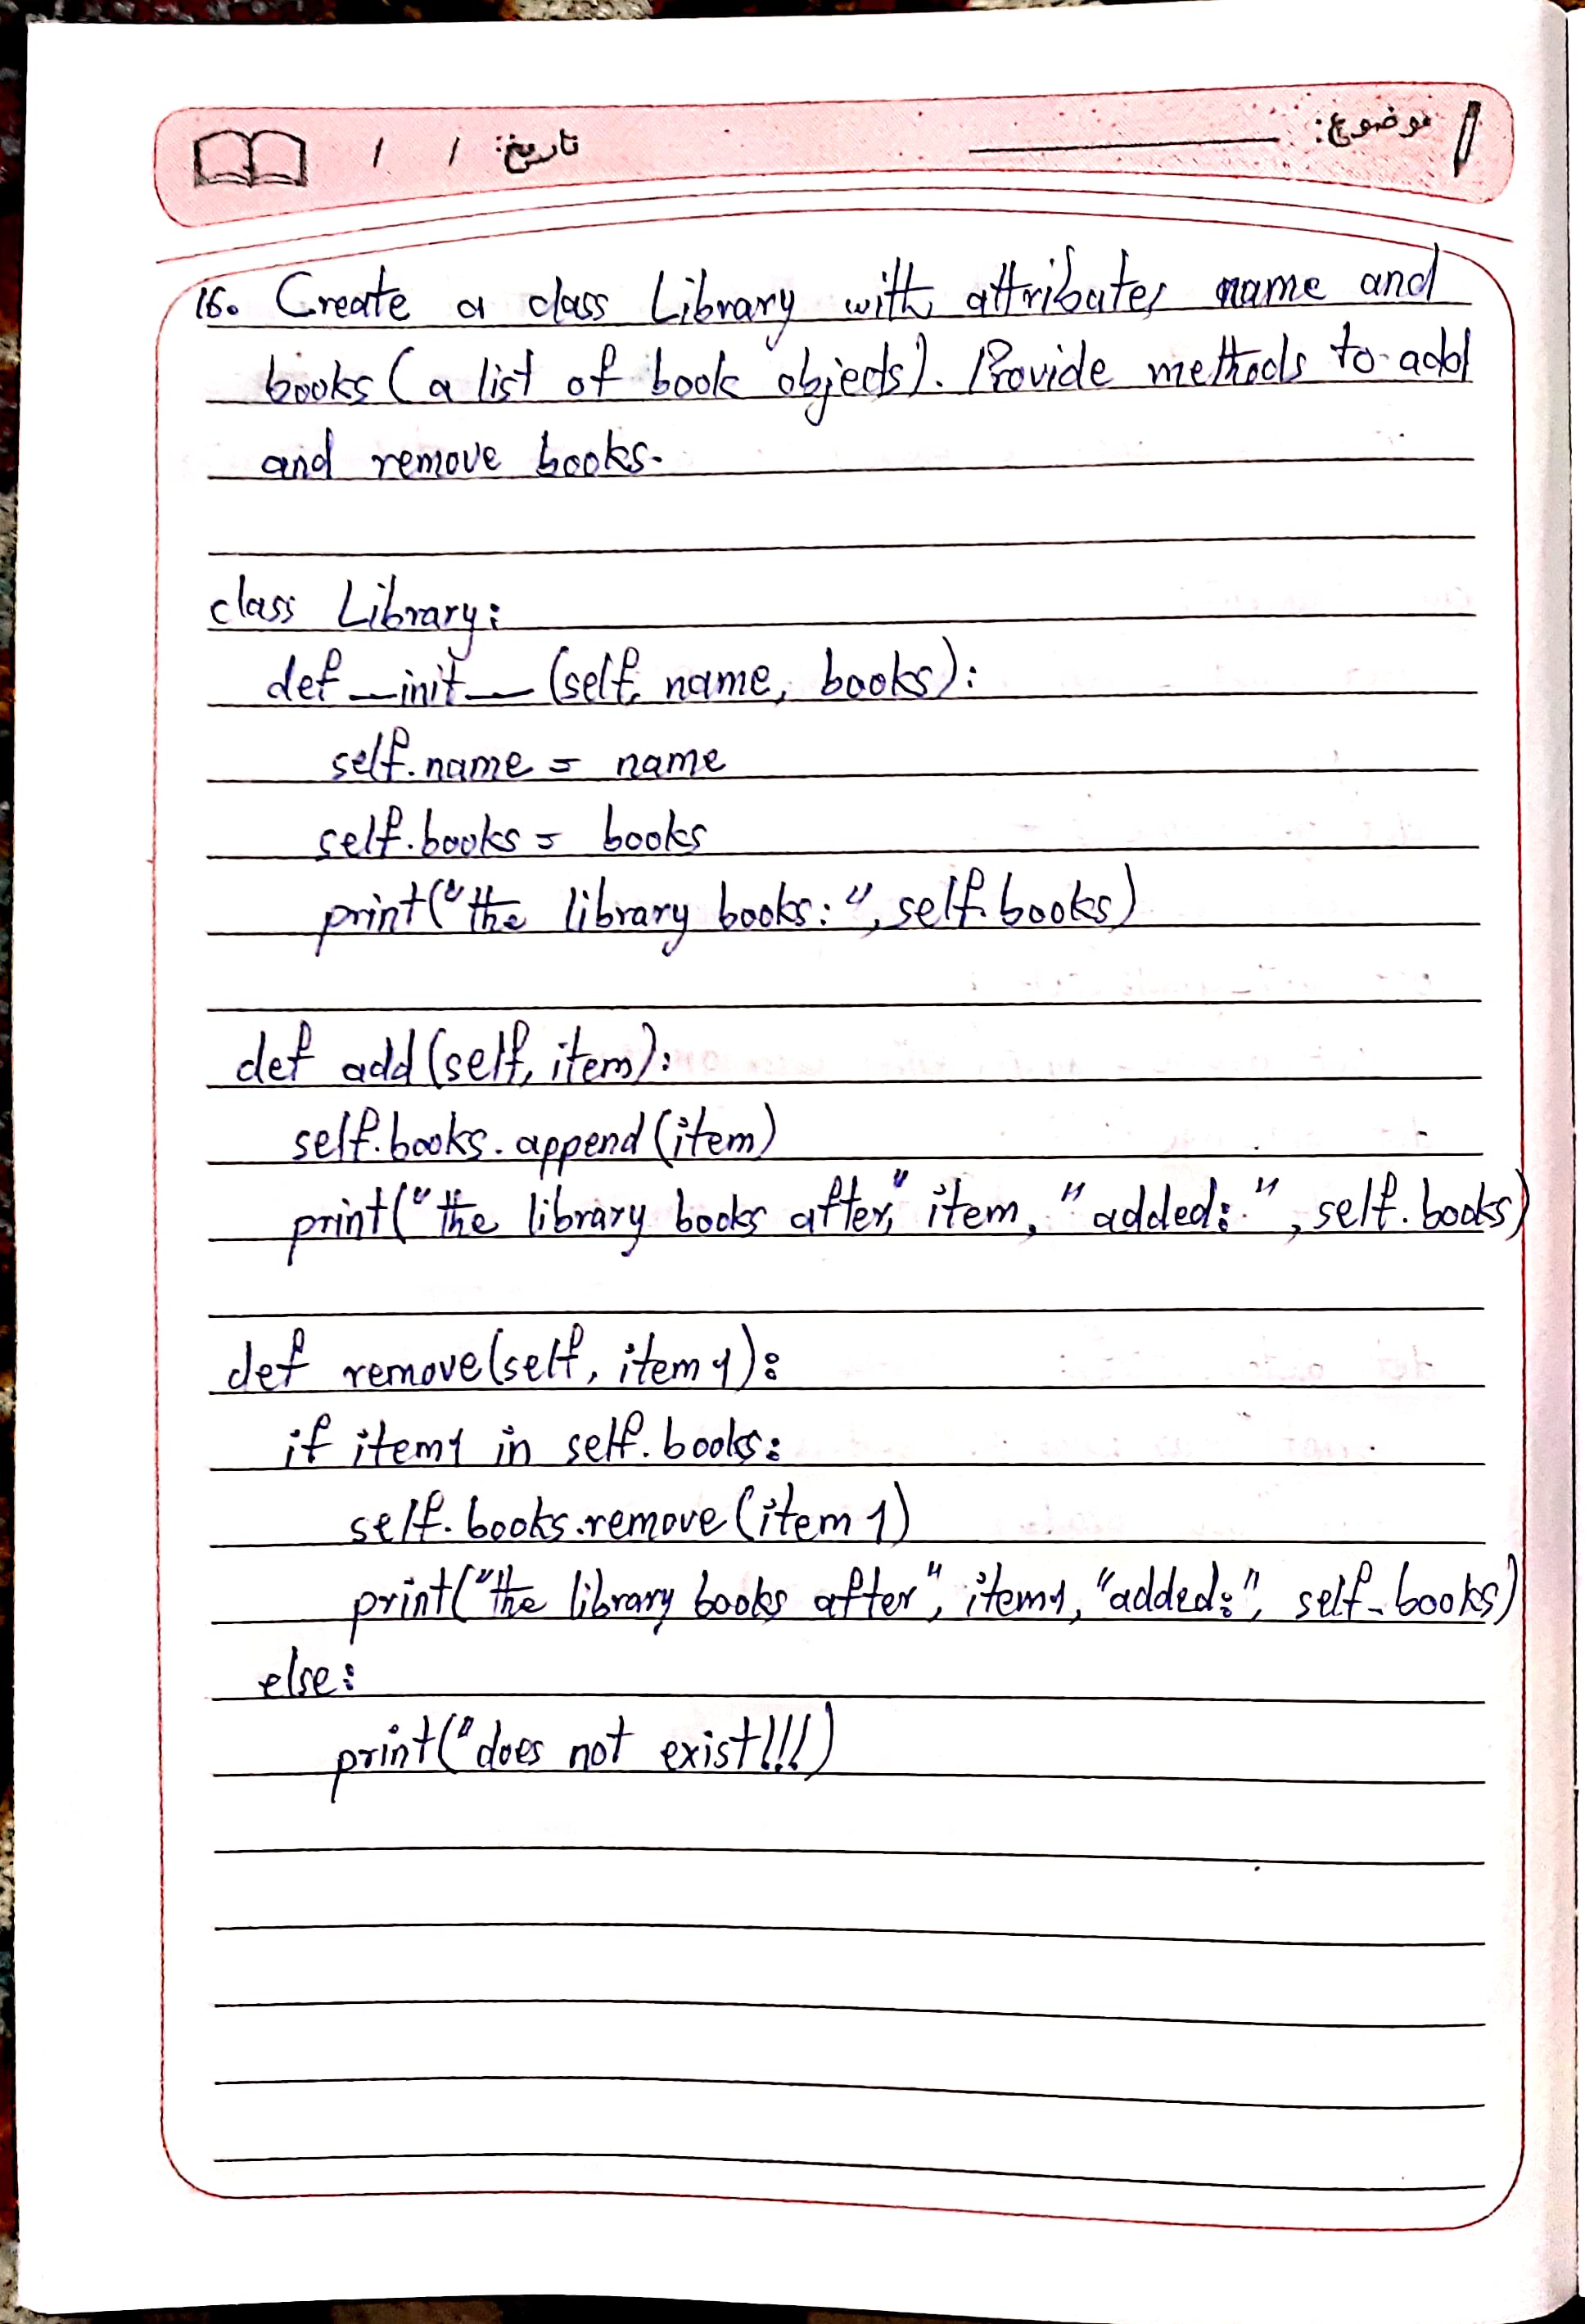 موضوع:
تاریخ: / /
16. Create a class Library with attributes name and
books (a list of book objects). Provide methods to add
and remove books.
class Library:
def __init__ (self, name, books):
self.name = name
self.books = books
print("the library books:", self.books)
def add (self, item):
self.books.append (item)
print("the library books after," item, " added: ", self.books)
def remove (self, item1):
if item1 in self.books:
self.books.remove (item1)
print("the library books after", item1, "added:", self.books)
else:
print("does not exist!!!)